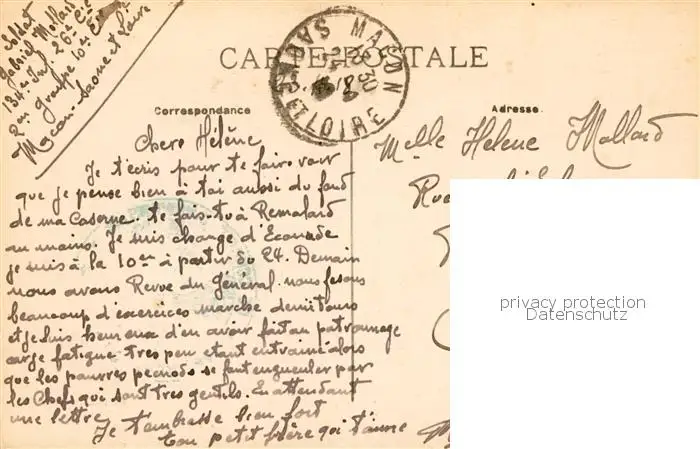 Soldat
Gabriel Mallard
134e Inf. 26e Cie
2me groupe 10er E
Macon. Saone et Loire
CARTE POSTALE
MACON
18 30
SAONE ET LOIRE
Correspondance
Adresse
Chere Hélène
Je t'écris pour te faire voir
que je pense bien à toi aussi du fond
de ma Caserne. te fais-tu à Remalard
au moins. Je suis changé d'Escouade
je suis à la 10er à partir du 24. Demain
nous avons Revue du Général. nous fesons
beaucoup d'exercices marche demi tours
et je suis heureux d'en avoir fait au patronnage
car je fatigue tres peu etant entrainé alors
que les pauvres pecnods se font engueuler par
les Chefs qui sont tres gentils. En attendant
une lettre
Je t'embrasse bien fort
Ton petit frère qui t'aime
Melle Helene Mallard
Rue
privacy protection
Datenschutz